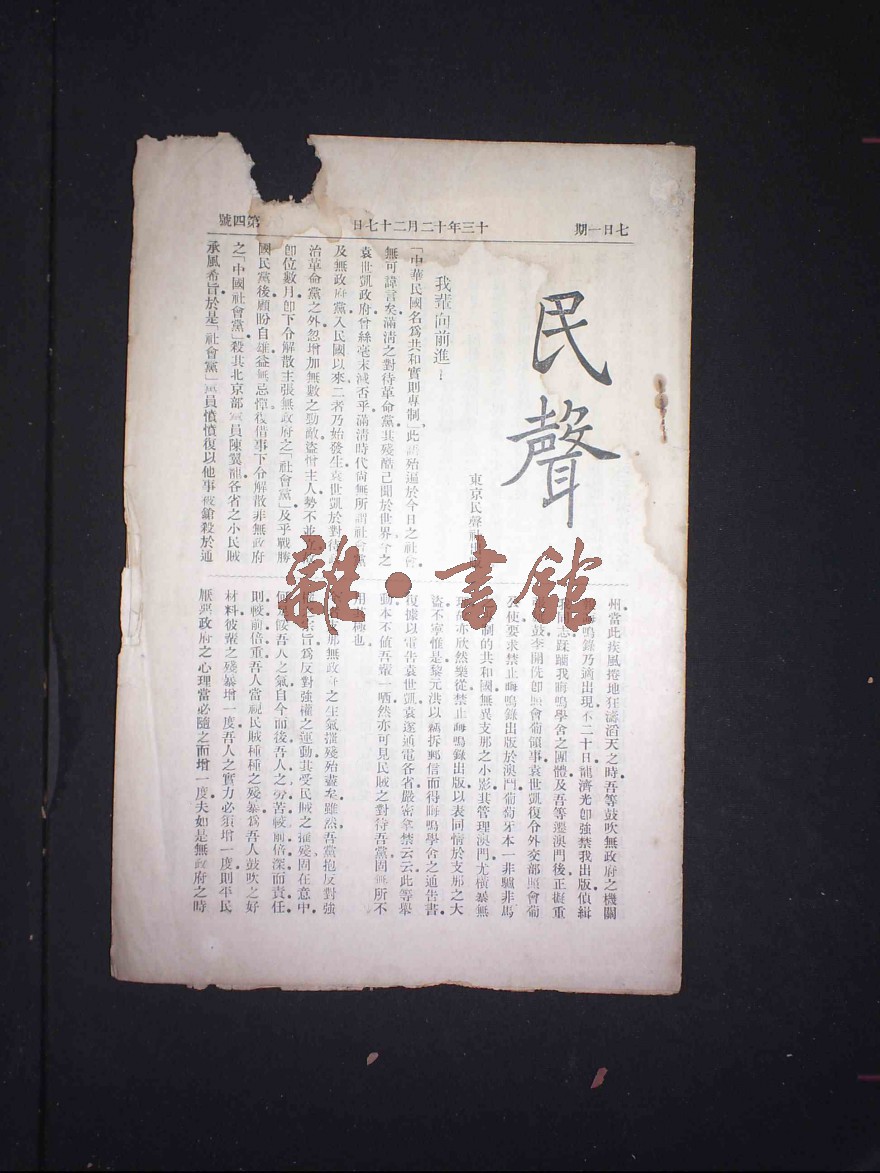 七日一期
十三年十二月二十七日
第四號
民聲
東京民聲社
我輩向前進！
「中華民國名爲共和實則專制」此語殆遍於今日之社會
無可諱言矣滿清之對待革命黨其殘酷已聞於世界今之
袁世凱政府曾絲毫末減否乎滿清時代尙無所謂社會黨
及無政府黨入民國以來二者乃始發生袁世凱於對待
治革命黨之外忽增加無數之勁敵盜憎主人勢不並立
卽位數月卽下令解散主張無政府之「社會黨」及乎戰勝
國民黨後顧盼自雄益無忌憚復借事下令解散非無政府
之「中國社會黨」殺其北京部黨員陳翼龍各省之小民賊
承風希旨於是「社會黨」黨員憤憤復以他事被鎗殺於通
州當此疾風捲地狂濤滔天之時吾等鼓吹無政府之機關
晦鳴錄乃適出現不二十日龍濟光卽強禁我出版偵緝
同志蹂躪我晦鳴學舍之團體及吾等遷澳門後正擬重
鼓李開侁卽照會葡領事袁世凱復令外交部照會葡
使要求禁止晦鳴錄出版於澳門葡萄牙本一非驢非馬
制的共和國無異支那之小影其管理澳門尤橫暴無
亦欣然樂從禁止晦鳴錄出版以表同情於支那之大
盜不寧惟是黎元洪以竊拆郵信而得晦鳴學舍之通告書
復據以電告袁世凱袁遂通電各省嚴密拿禁云云此等舉
動本不値吾輩一哂然亦可見民賊之對待吾黨固無所不
用極也
那無政府之生氣摧殘殆盡矣雖然吾黨抱反對強
宗旨爲反對強權之運動其受民賊之摧殘固在意中
何足餒吾人之氣自今而後吾人之勞苦較前倍深而責任
則較前倍重吾人當視民賊種種之殘暴爲吾人鼓吹之好
材料彼輩之殘暴增一度吾人之實力必須增一度則平民
厭惡政府之心理當必隨之而增一度夫如是無政府之時
雜・書館